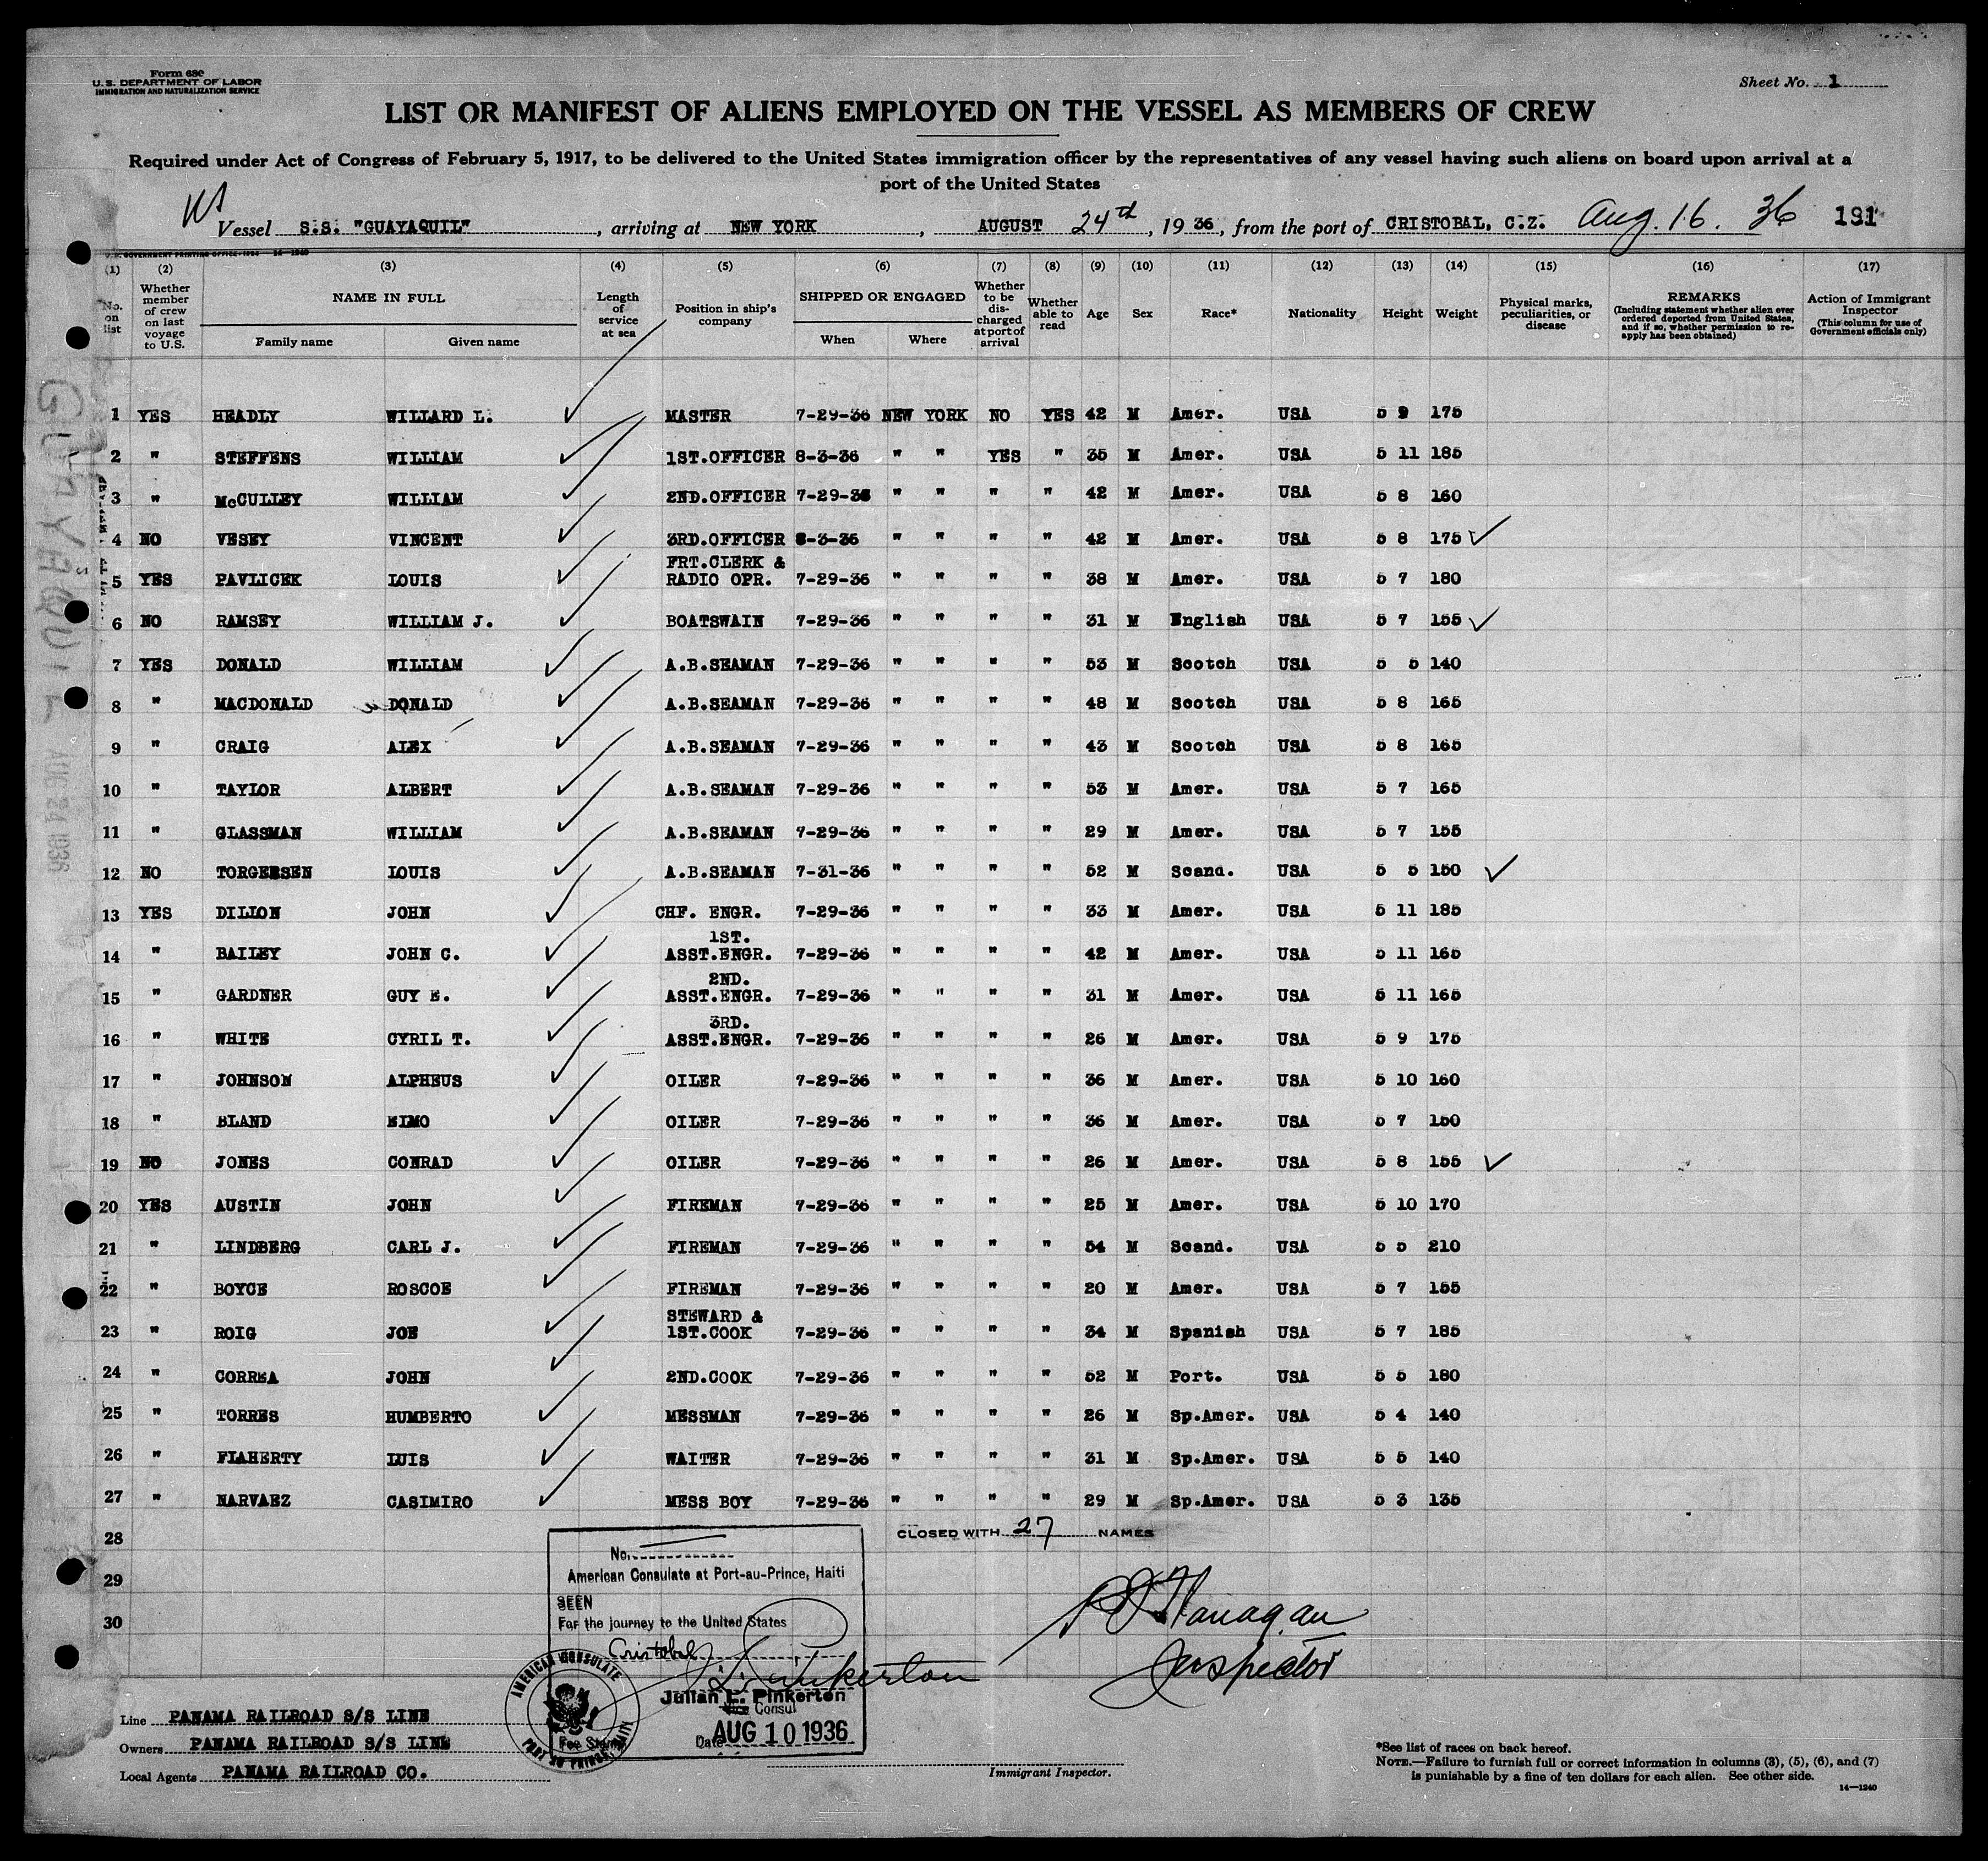 Form 680
U. S. DEPARTMENT OF LABOR
IMMIGRATION AND NATURALIZATION SERVICE
Sheet No. 1
LIST OR MANIFEST OF ALIENS EMPLOYED ON THE VESSEL AS MEMBERS OF CREW
Required under Act of Congress of February 5, 1917, to be delivered to the United States immigration officer by the representatives of any vessel having such aliens on board upon arrival at a
port of the United States
Vessel S.S. "GUAYAQUIL", arriving at NEW YORK, AUGUST 24th, 1936, from the port of CRISTOBAL, C.Z. Aug. 16. 36 191
(1) (2) (3) (4) (5) (6) (7) (8) (9) (10) (11) (12) (13) (14) (15) (16) (17)
No. on list
Whether member of crew on last voyage to U.S.
NAME IN FULL
Family name Given name
Length of service at sea
Position in ship's company
SHIPPED OR ENGAGED
When Where
Whether to be discharged at port of arrival
Whether able to read
Age
Sex
Race*
Nationality
Height
Weight
Physical marks, peculiarities, or disease
REMARKS
(Including statement whether alien ever ordered deported from United States, and if so, whether permission to re-apply has been obtained)
Action of Immigrant Inspector
(This column for use of Government officials only)
1 YES HEADLY WILLARD L. MASTER 7-29-36 NEW YORK NO YES 42 M Amer. USA 5 9 175
2 " STEFFENS WILLIAM 1ST.OFFICER 8-3-36 " " YES " 35 M Amer. USA 5 11 185
3 " McCULLEY WILLIAM 2ND.OFFICER 7-29-36 " " " " 42 M Amer. USA 5 8 160
4 NO VESEY VINCENT 3RD.OFFICER 8-3-36 " " " " 42 M Amer. USA 5 8 175
5 YES PAVLICEK LOUIS FRT.CLERK & RADIO OPR. 7-29-36 " " " " 38 M Amer. USA 5 7 180
6 NO RAMSEY WILLIAM J. BOATSWAIN 7-29-36 " " " " 31 M English USA 5 7 155
7 YES DONALD WILLIAM A.B.SEAMAN 7-29-36 " " " " 53 M Scotch USA 5 5 140
8 " MACDONALD DONALD A.B.SEAMAN 7-29-36 " " " " 48 M Scotch USA 5 8 165
9 " CRAIG ALEX A.B.SEAMAN 7-29-36 " " " " 43 M Scotch USA 5 8 165
10 " TAYLOR ALBERT A.B.SEAMAN 7-29-36 " " " " 53 M Amer. USA 5 7 165
11 " GLASSMAN WILLIAM A.B.SEAMAN 7-29-36 " " " " 29 M Amer. USA 5 7 155
12 NO TORGERSEN LOUIS A.B.SEAMAN 7-31-36 " " " " 52 M Scand. USA 5 5 150
13 YES DILLON JOHN CHF. ENGR. 7-29-36 " " " " 33 M Amer. USA 5 11 185
14 " BAILEY JOHN C. 1ST. ASST.ENGR. 7-29-36 " " " " 42 M Amer. USA 5 11 165
15 " GARDNER GUY E. 2ND. ASST.ENGR. 7-29-36 " " " " 31 M Amer. USA 5 11 165
16 " WHITE CYRIL T. 3RD. ASST.ENGR. 7-29-36 " " " " 26 M Amer. USA 5 9 175
17 " JOHNSON ALPHEUS OILER 7-29-36 " " " " 36 M Amer. USA 5 10 160
18 " BLAND EIMO OILER 7-29-36 " " " " 36 M Amer. USA 5 7 150
19 NO JONES CONRAD OILER 7-29-36 " " " " 26 M Amer. USA 5 8 155
20 YES AUSTIN JOHN FIREMAN 7-29-36 " " " " 25 M Amer. USA 5 10 170
21 " LINDBERG CARL J. FIREMAN 7-29-36 " " " " 54 M Scand. USA 5 5 210
22 " BOYCE ROSCOE FIREMAN 7-29-36 " " " " 20 M Amer. USA 5 7 155
23 " ROIG JOE STEWARD & 1ST.COOK 7-29-36 " " " " 34 M Spanish USA 5 7 185
24 " CORREA JOHN 2ND.COOK 7-29-36 " " " " 52 M Port. USA 5 5 180
25 " TORRES HUMBERTO MESSMAN 7-29-36 " " " " 26 M Sp.Amer. USA 5 4 140
26 " FLAHERTY LUIS WAITER 7-29-36 " " " " 31 M Sp.Amer. USA 5 5 140
27 " NARVAEZ CASIMIRO MESS BOY 7-29-36 " " " " 29 M Sp.Amer. USA 5 3 135
28 CLOSED WITH 27 NAMES
29
30
GUAYAQUIL AUG 24 1936
No.
American Consulate at Port-au-Prince, Haiti
SEEN
For the journey to the United States
Cristobal
Pinkerton
Julian L. Pinkerton
Vice Consul
Date AUG 10 1936
AMERICAN CONSULATE
PORT AU PRINCE, HAITI
Fee Stamp
Flanagan
Inspector
Line PANAMA RAILROAD S/S LINE
Owners PANAMA RAILROAD S/S LINE
Local Agents PANAMA RAILROAD CO.
Immigrant Inspector.
*See list of races on back hereof.
NOTE.—Failure to furnish full or correct information in columns (3), (5), (6), and (7)
is punishable by a fine of ten dollars for each alien. See other side.
14—1240